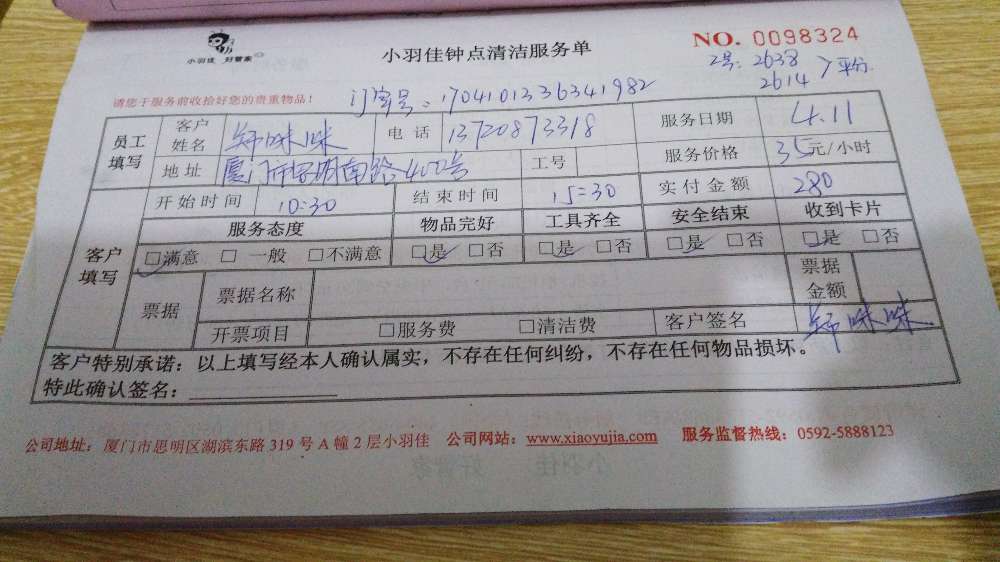 小羽佳 好管家
小羽佳钟点清洁服务单
NO. 0098324
工号: 2638
2614 > 平分
请您于服务前收拾好您的贵重物品!
订单号: 1704101336341982
员工填写 客户姓名 郑咪咪 电话 13720873318 服务日期 4.11
地址 厦门市思明南路400号 工号 服务价格 35元/小时
客户填写 开始时间 10:30 结束时间 15:30 实付金额 280
服务态度 物品完好 工具齐全 安全结束 收到卡片
□满意 □一般 □不满意 □是 □否 □是 □否 □是 □否 □是 □否
票据 票据名称 票据金额
开票项目 □服务费 □清洁费 客户签名 郑咪咪
客户特别承诺：以上填写经本人确认属实，不存在任何纠纷，不存在任何物品损坏。
特此确认签名：
公司地址：厦门市思明区湖滨东路 319 号 A 幢 2 层小羽佳 公司网站：www.xiaoyujia.com 服务监督热线：0592-5888123